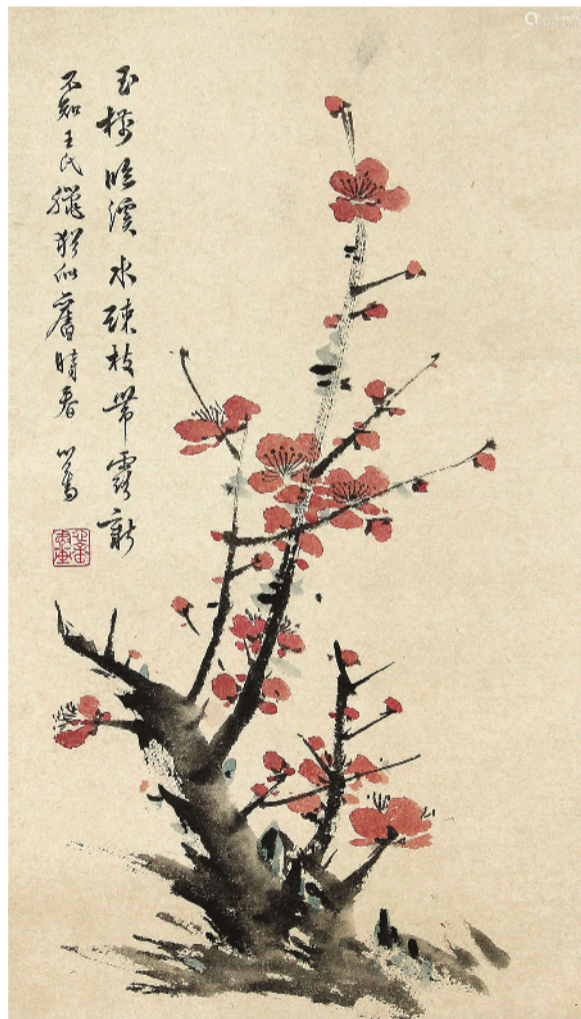 玉樹臨溪水疎枝帶露新
不知王氏臘猶似舊時春 心畬